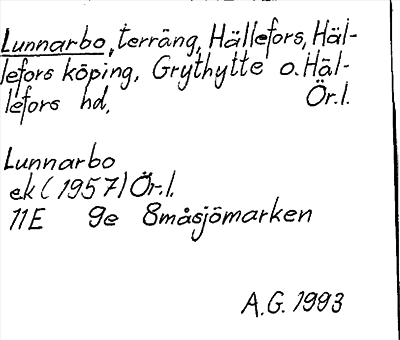 Lunnarbo, terräng, Hällefors, Häl-
lefors köping, Grythytte o. Häl-
lefors hd, Ör.l.
Lunnarbo
ek (1957) Ör.l.
11E 9e 8måsjömarken
A.G. 1993